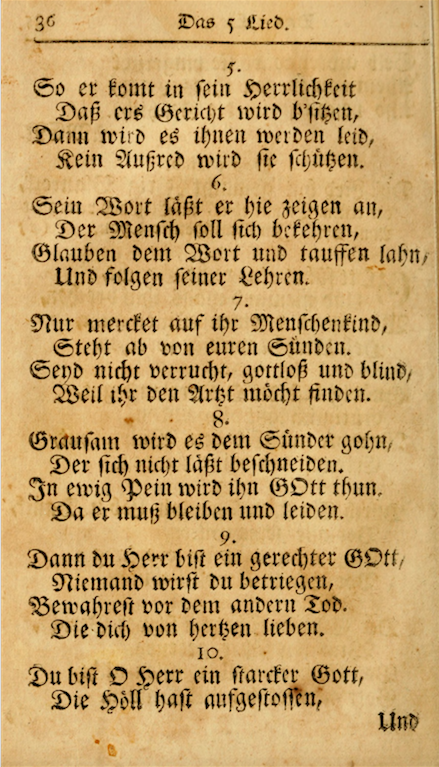 36 Das 5 Lied.
5.
So er komt in sein Herrlichkeit
Daß ers Gericht wird b'sitzen,
Dann wird es ihnen werden leid,
Kein Außred wird sie schützen.
6.
Sein Wort läßt er hie zeigen an,
Der Mensch soll sich bekehren,
Glauben dem Wort und tauffen lahn,
Und folgen seiner Lehren.
7.
Nur mercket auf ihr Menschenkind,
Steht ab von euren Sünden.
Seyd nicht verrucht, gottloß und blind,
Weil ihr den Artzt möcht finden.
8.
Grausam wird es dem Sünder gohn,
Der sich nicht läßt beschneiden.
In ewig Pein wird ihn GOtt thun.
Da er muß bleiben und leiden.
9.
Dann du Herr bist ein gerechter GOtt,
Niemand wirst du betriegen,
Bewahrest vor dem andern Tod.
Die dich von hertzen lieben.
10.
Du bist O Herr ein starcker Gott,
Die Höll hast aufgestossen,
Und